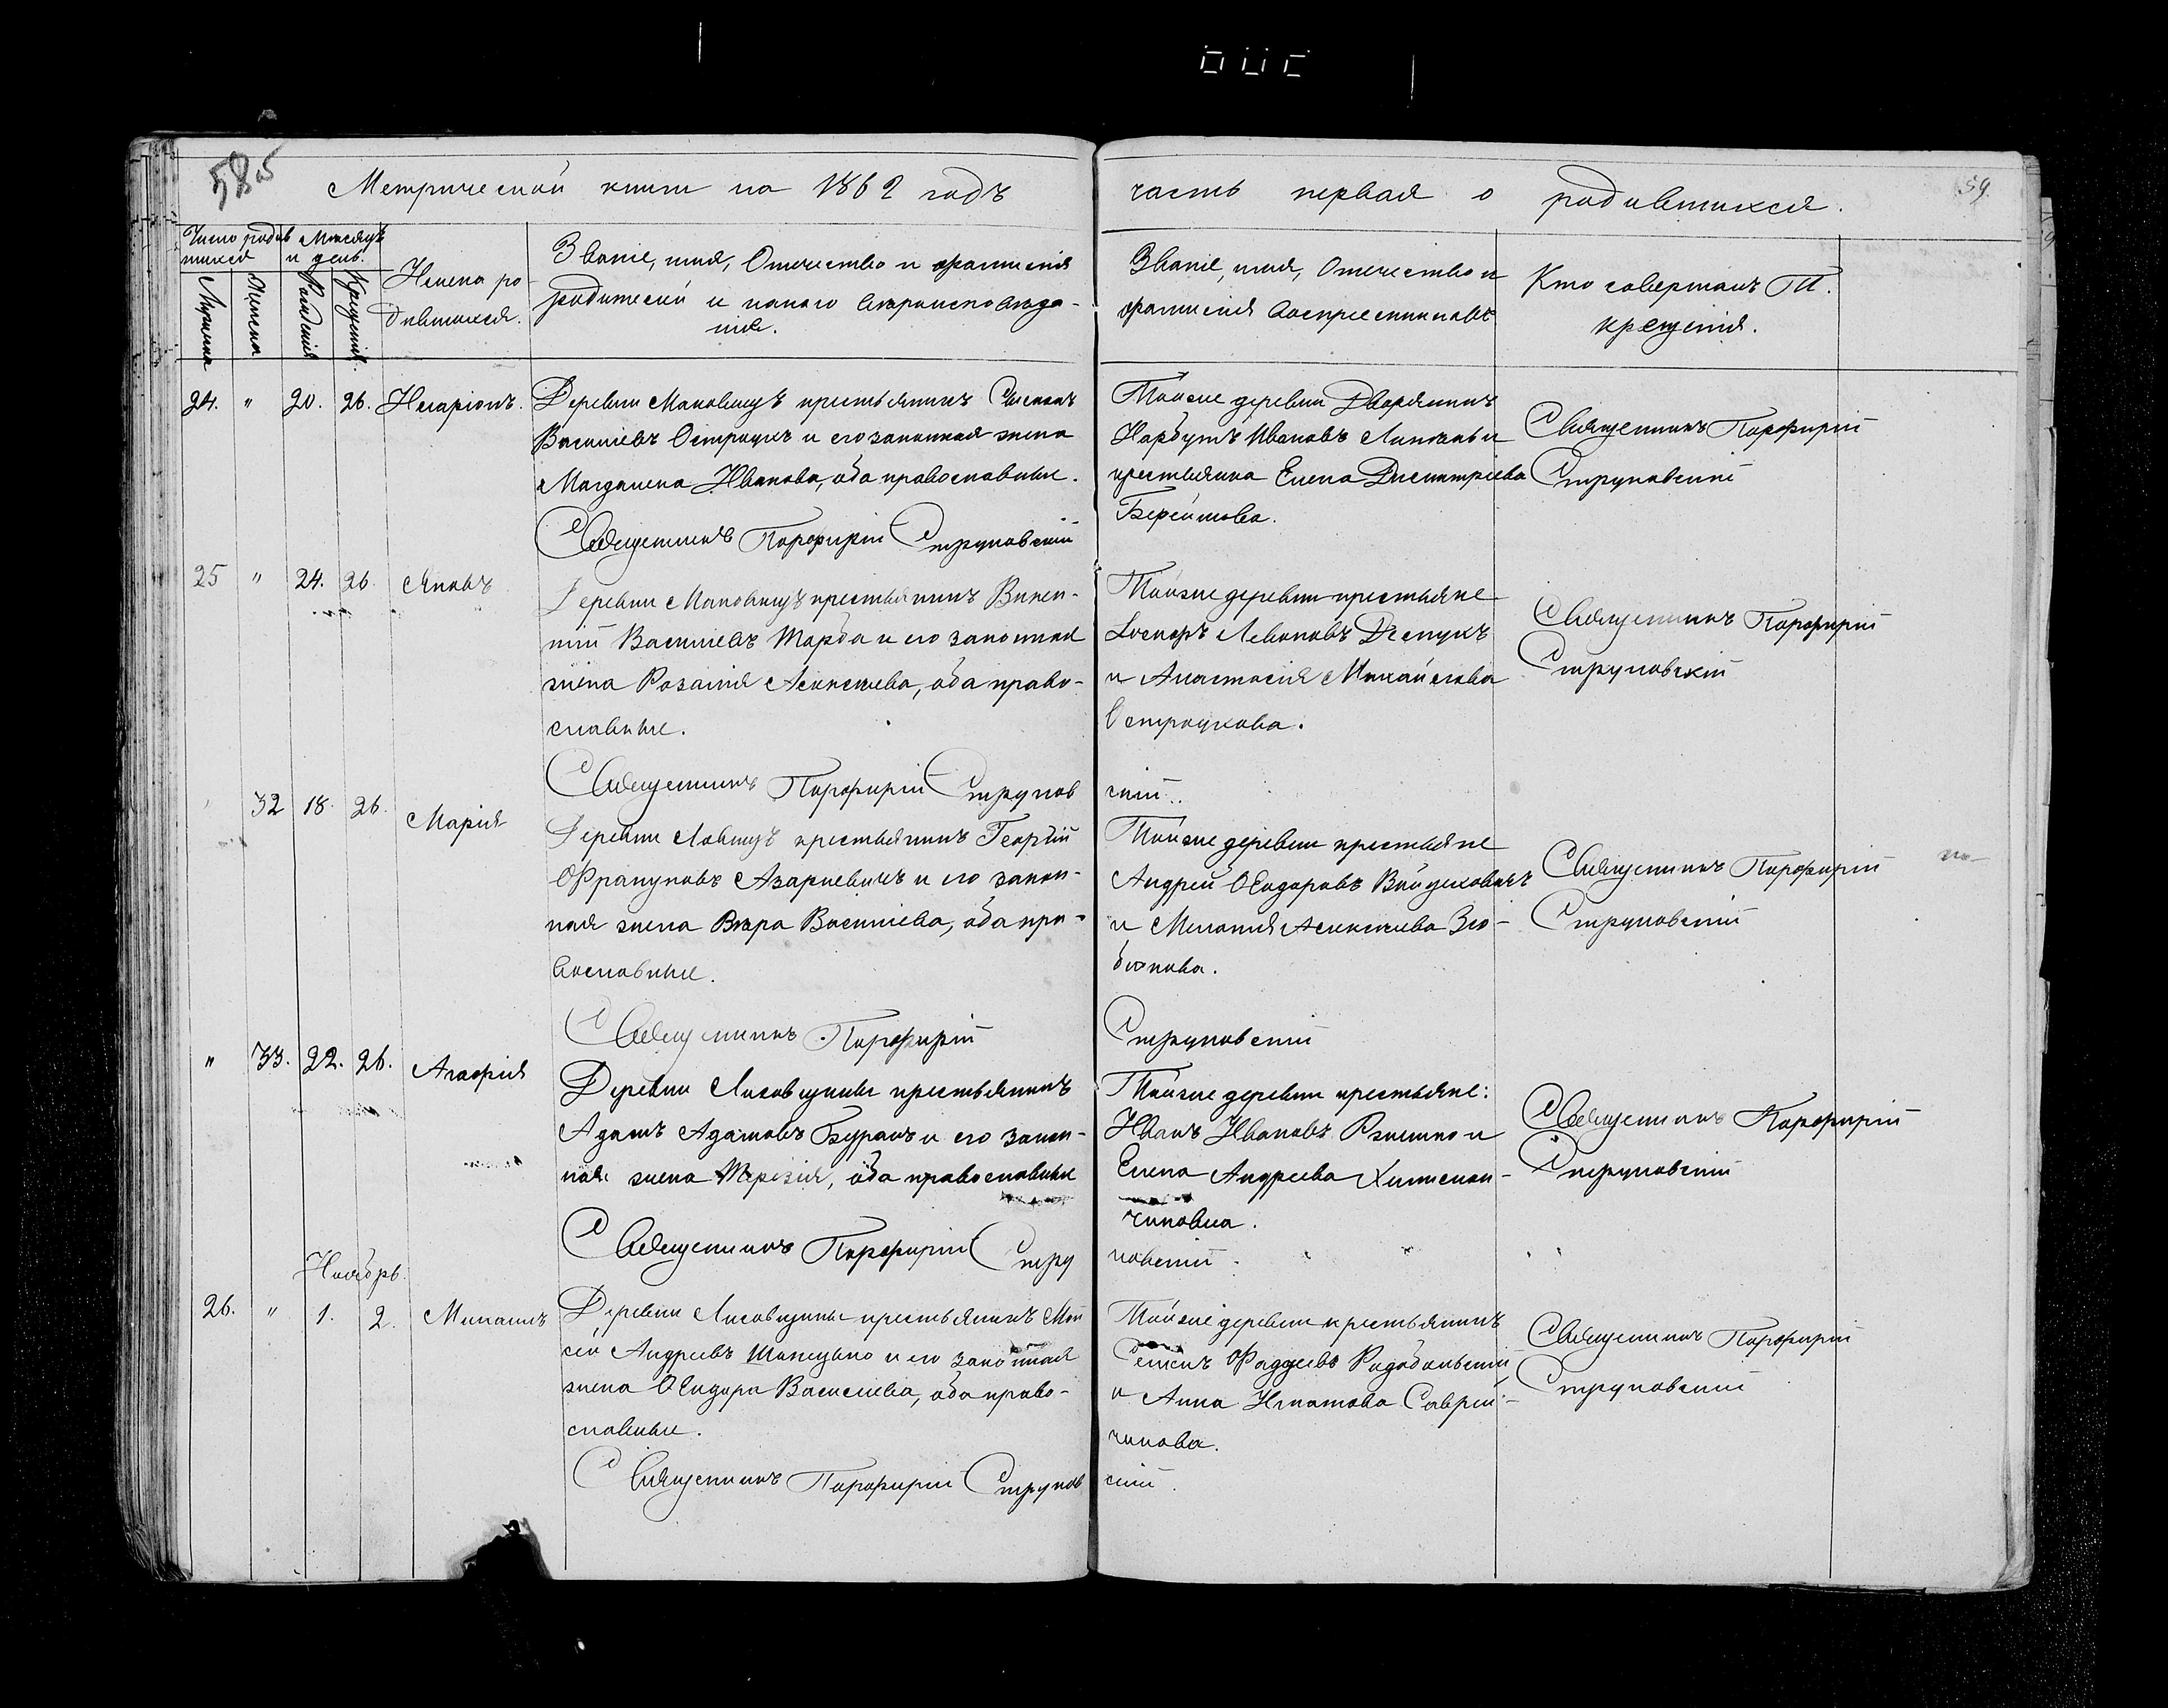 585
59.
Метрической книги на 1862 годъ
часть первая о родившихся.
Число родив
шихся
Мѣсяцъ
и день.
Мужска
Женска
Рожденія
Крещенія.
Имена ро
дившихся.
Званіе, имя, Отчество и фамилія
родителей и какого вѣроисповѣда-
нія.
Званіе, имя, Отчество и
фамилія воспріемниковъ
Кто совершалъ Т.
крещенія.
24. " 20. 26. Иларіонъ.
Деревни Маковищъ крестьянинъ
Васильевъ Остроухъ и его законная жена
Магдалена Иванова, оба православные.
Священникъ Порфирій Струковскій
Тойже деревни Дворянинъ
Нарбутъ Ивановъ и
крестьянка Елена Димитріева
Священникъ Порфирій
Струковскій
25 " 24. 26. Яковъ
Деревни Маковищъ крестьянинъ Викен-
тій Васильевъ Шарба и его законная
жена Розалія Алексѣева, оба право-
славные.
Священникъ Порфирій Струков
скій..
Тойже деревни крестьяне
Левоновъ
и Анастасія Михайлова
Остроухова.
Священникъ Порфирій
Струковскій
32 18. 26. Марія
Деревни крестьянинъ Георгій
Францковъ Азаркевичъ и его закон-
ная жена Вѣра Васильева, оба пра-
вославные.
Священникъ Порфирій
Струковскій
Тойже деревни крестьяне
Андрей Ѳедоровъ Войцеховичъ
и Меланія Алексѣева Зю-
Священникъ Порфирій
Струковскій
" 33. 22. 26. Агафія
Деревни Лисовщины крестьянинъ
Адамъ Адамовъ Буракъ и его закон-
ная жена Терезія, оба православные
Священникъ Порфирій Стру
ковскій.
Тойже деревни крестьяне:
Иванъ Ивановъ и
Елена Андреева
Священникъ Порфирій
Струковскій
Ноябрь.
26. " 1. 2. Михаилъ
Деревни Лисовщины крестьянинъ Мои
сей Андреевъ и его законная
жена Ѳеодора Васильева, оба право-
славные.
Священникъ Порфирій Струков
скій.
Тойже деревни крестьянинъ
Ѳаддеевъ
и Анна Игнатова
Священникъ Порфирій
Струковскій